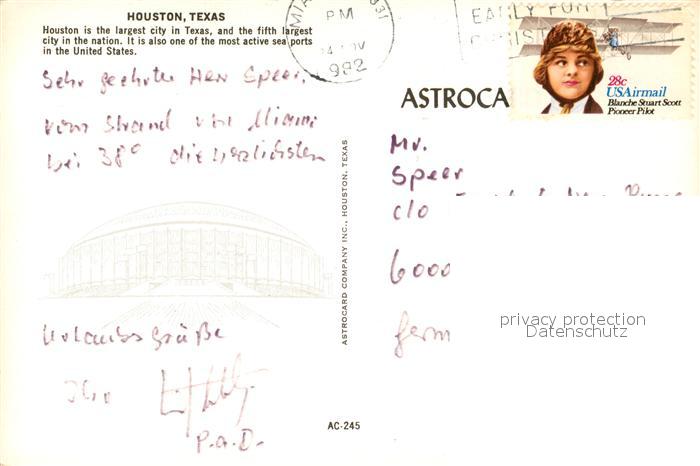 HOUSTON, TEXAS
Houston is the largest city in Texas, and the fifth largest
city in the nation. It is also one of the most active sea ports
in the United States.
Sehr geehrter Herr Speer,
vom Strand von Miami
bei 38° die herzlichsten
Urlaubsgrüße
Ihr
P.a.D.
ASTROCARD COMPANY INC., HOUSTON, TEXAS
AC-245
PM
1982
EARLY FOR
ASTROCA
28c
USAirmail
Blanche Stuart Scott
Pioneer Pilot
Mr.
Speer
c/o
6000
Germ
privacy protection
Datenschutz